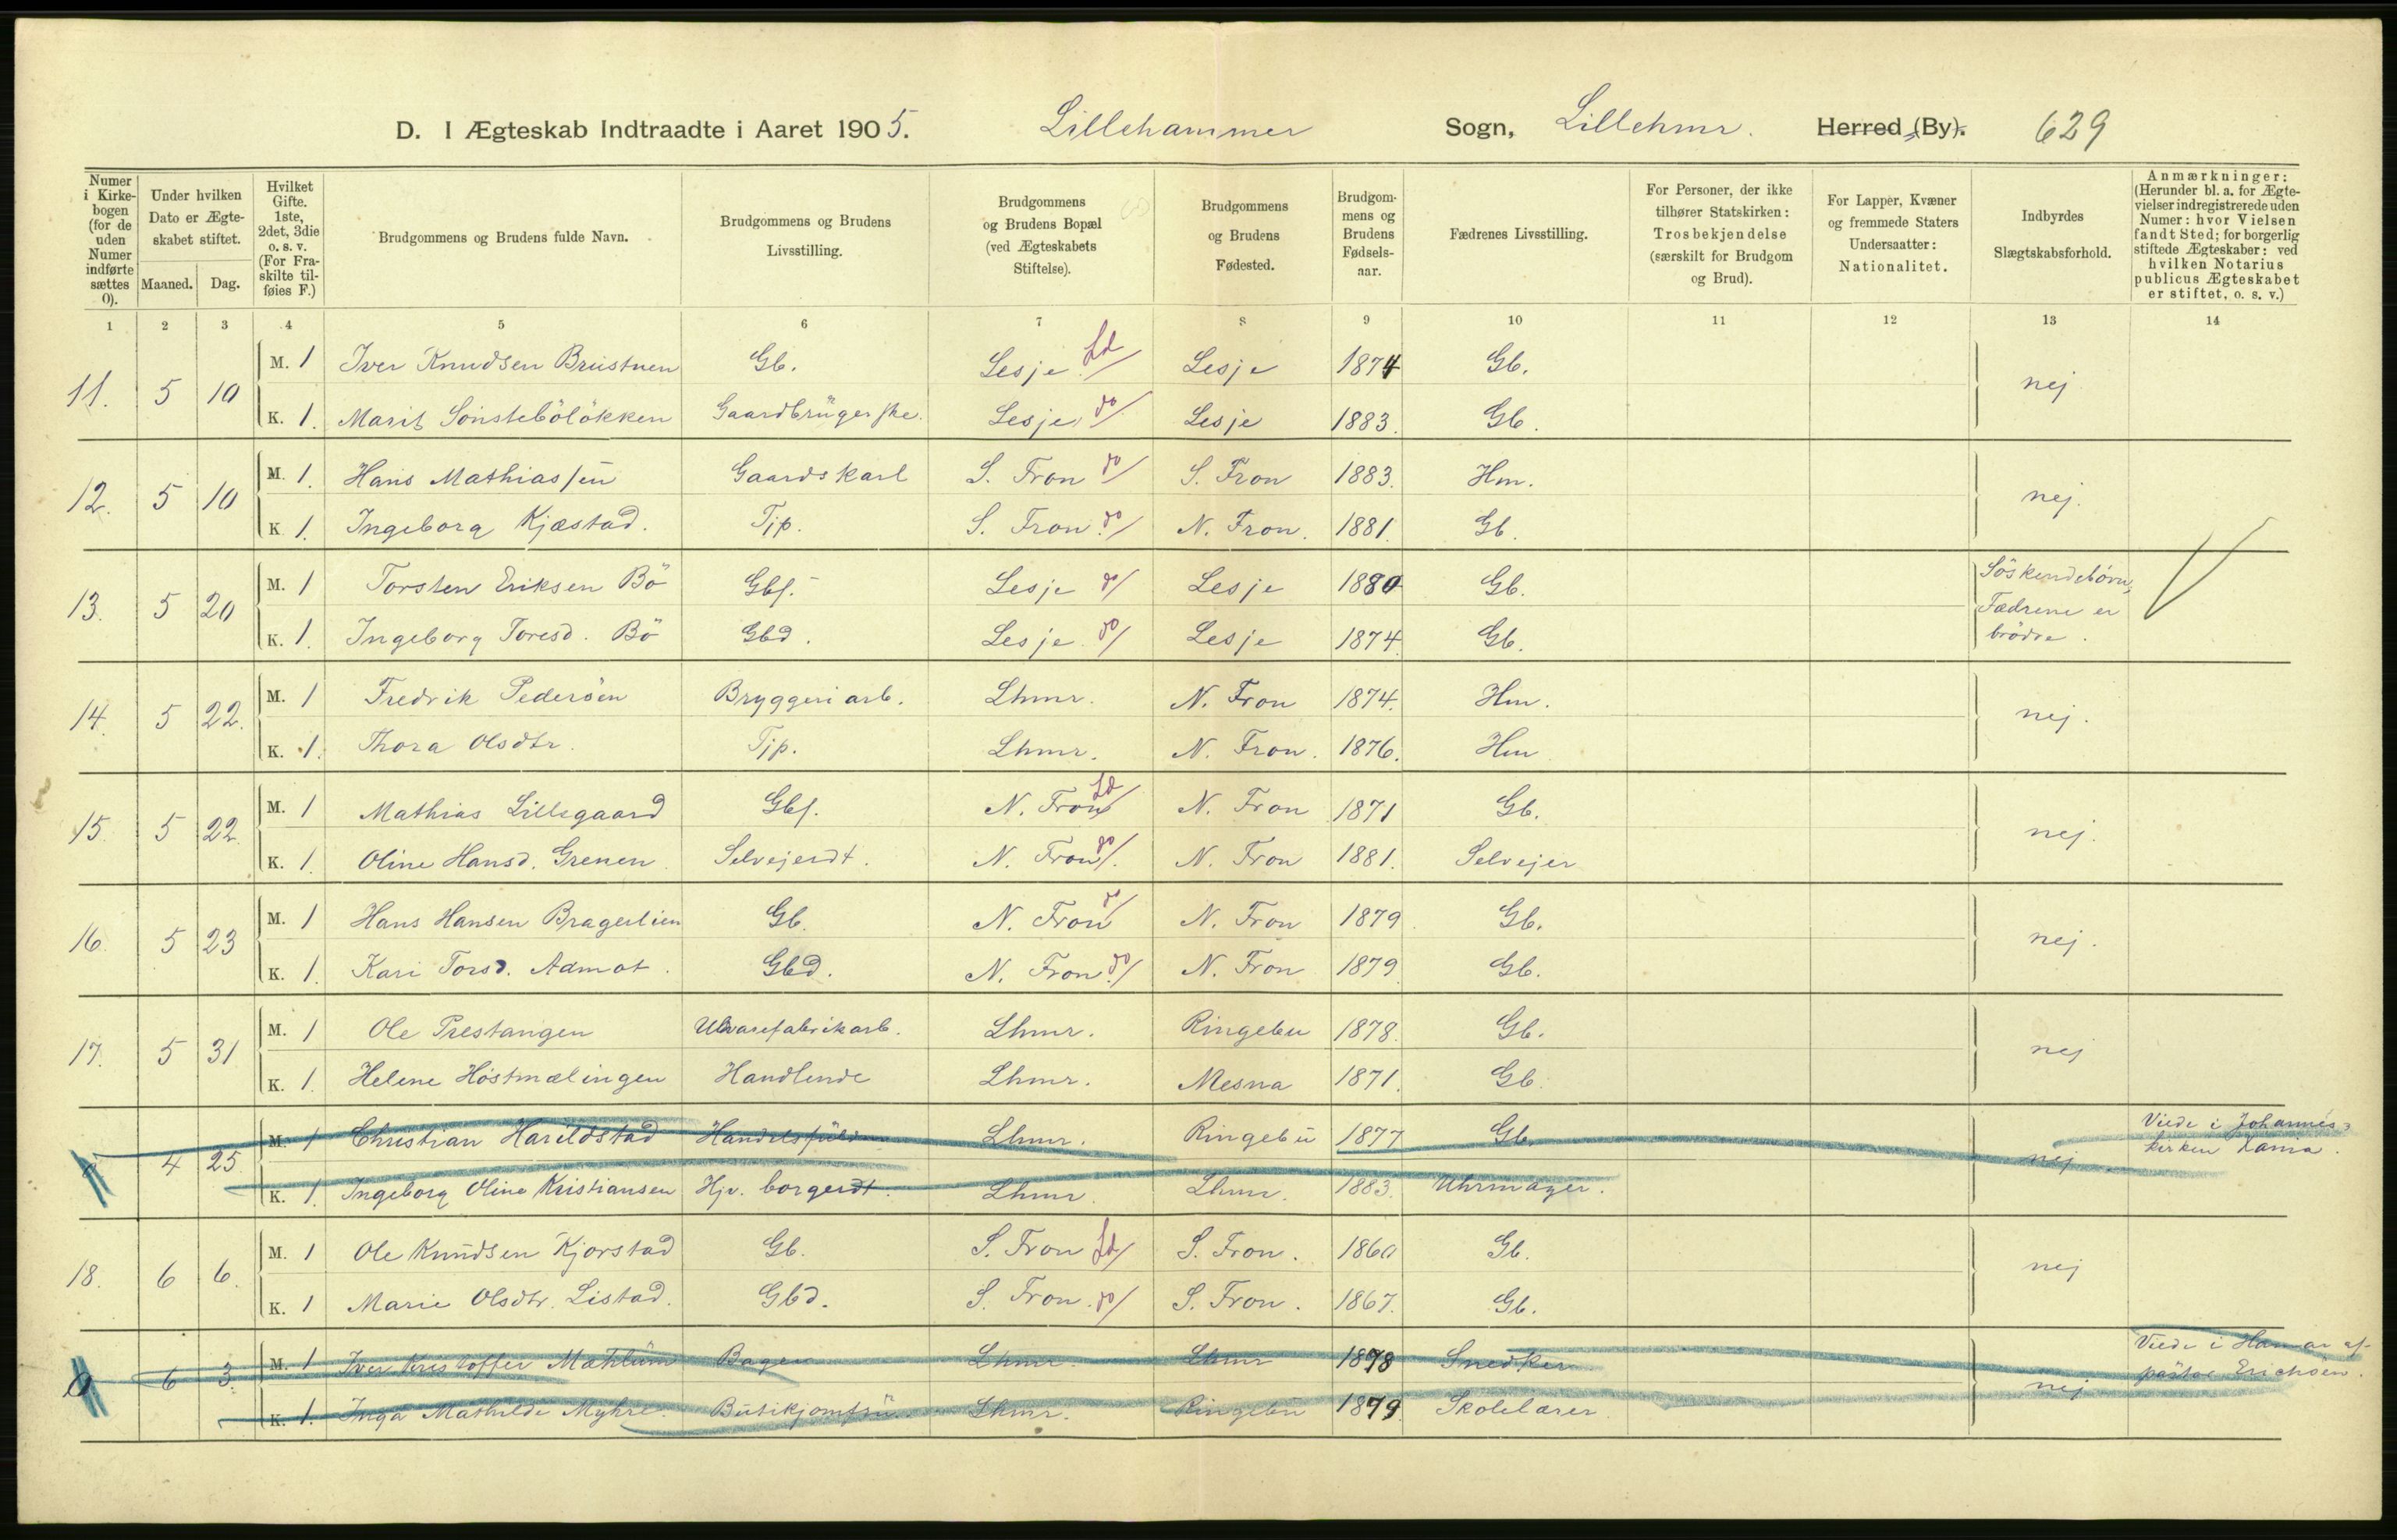 D. I Ægteskab Indtraadte i Aaret 1905. Lillehammer Sogn, Lillehmr. Herred (By). 629
Numer i Kirkebogen (for de uden Numer indførte sættes 0).
Under hvilken Dato er Ægteskabet stiftet.
Maaned. Dag.
Hvilket Gifte. 1ste, 2det, 3die o. s. v. (For Fraskilte tilføies F.)
Brudgommens og Brudens fulde Navn.
Brudgommens og Brudens Livsstilling.
Brudgommens og Brudens Bopæl (ved Ægteskabets Stiftelse).
Brudgommens og Brudens Fødested.
Brudgommens og Brudens Fødselsaar.
Fædrenes Livsstilling.
For Personer, der ikke tilhører Statskirken: Trosbekjendelse (særskilt for Brudgom og Brud).
For Lapper, Kvæner og fremmede Staters Undersaatter: Nationalitet.
Indbyrdes Slægtskabsforhold.
Anmærkninger: (Herunder bl. a. for Ægtevielser indregistrerede uden Numer: hvor Vielsen fandt Sted; for borgerlig stiftede Ægteskaber: ved hvilken Notarius publicus Ægteskabet er stiftet, o. s. v.)
1 2 3 4 5 6 7 8 9 10 11 12 13 14
M. 1 Iver Knudsen Brustuen Gb. Lesje Ld Lesje 1874 Gb.
11. 5 10 nej
K. 1. Marit Sönstebölökken Gaardbrugerske. Lesje do Lesje 1883. Gb.
M. 1. Hans Mathiassen Gaardskarl S. Fron do S. Fron 1883. Hm.
12. 5 10 nej.
K 1. Ingeborg Kjæstad. Tjp. S. Fron. do N. Fron. 1881. Gb.
M. 1 Torsten Eriksen Bö Gbs. Lesje do Lesje 1880 Gb. Söskendebörn,
13. 5 20 Fædrene er
K. 1. Ingeborg Toresd. Bö Gbd. Lesje do Lesje 1874. Gb. brödre.
M. 1 Fredrik Pedersen Bryggeriarb. Lhmr. N. Fron 1874. Hm.
14. 5 22. nej.
K. 1. Thora Olsdtr. Tjp. Lhmr. N. Fron. 1876. Hm
M. 1 Mathias Lillegaard Gbs. N. Fron Ld N. Fron 1871 Gb.
15. 5 22. nej.
K. 1. Oline Hansd. Grenen Selvejerdt. N. Fron do N. Fron 1881. Selvejer
M. 1 Hans Hansen Bragerlien Gb. N. Fron do N. Fron 1879 Gb.
16. 5 23 nej.
K. 1. Kari Torsd. Aamot. Gbd. N. Fron do N. Fron 1879 Gb.
M. 1 Ole Prestangen Uldvarefabrikarb. Lhmr. Ringebu 1878. Gb.
17. 5 31 nej
K. 1. Helene Höstmælingen Handlende Lhmr. Mesna 1871. Gb.
M. 1 Christian Harildstad Lhmr. Ringebu 1877 Gb. Viede i Johannes-
4 25. nej kirken
K. 1. Ingeborg Oline Kristiansen Hjv. borgerdt. Lhmr. Lhmr. 1883. Uhrmager.
M. 1 Ole Knudsen Kjorstad Gb. S. Fron Ld S. Fron. 1860 Gb.
18. 6 6. nej
K. 1 Marie Olsdtr. Listad. Gbd. S. Fron. do S. Fron. 1867. Gb.
M. 1 Iver Kristoffer Mæhlum Bager Lhmr. Lhmr 1878 Snedker Viede i Hamar af
0 6 3. nej pastor Erichsen.
K. 1. Inga Mathilde Myhre. Butikjomfru. Lhmr. Ringebu 1879. Skolelærer